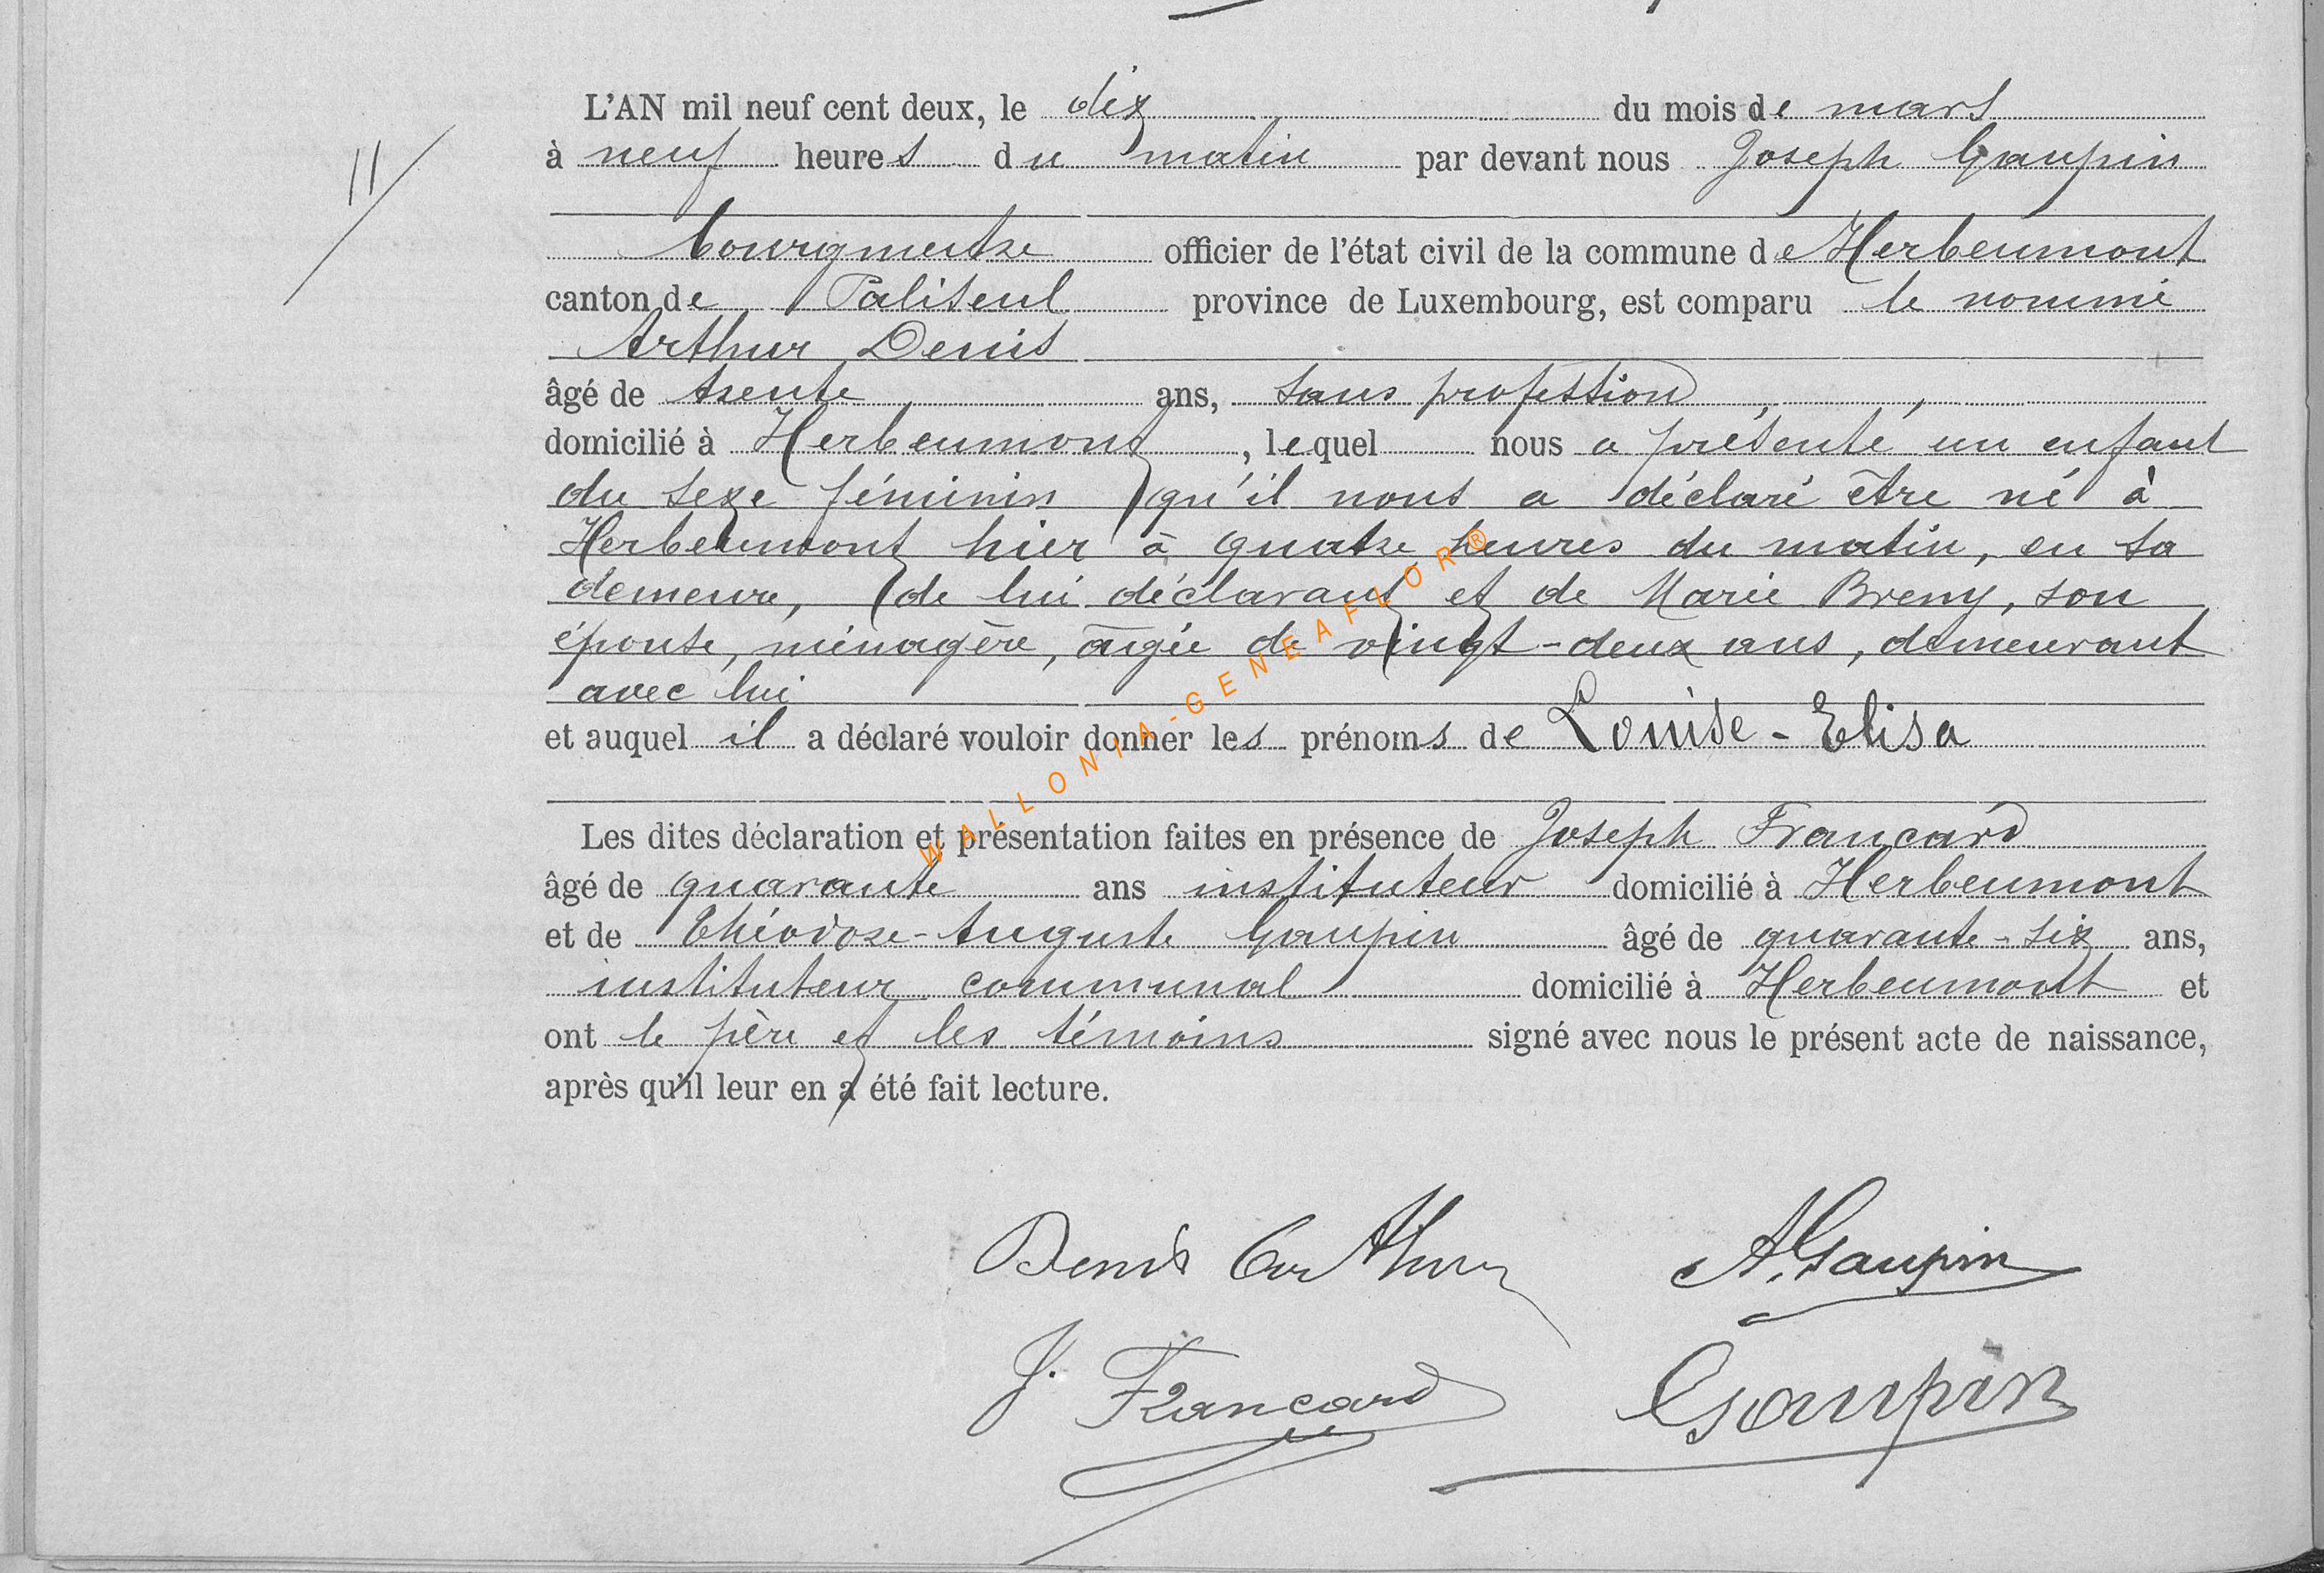 L'AN mil neuf cent deux, le dix du mois de mars
11/
à neuf heures du matin par devant nous Joseph Gaupin
bourgmestre officier de l'état civil de la commune de Herbeumont
canton de Paliseul province de Luxembourg, est comparu le nommé
Arthur Denis
âgé de trente ans, sans profession,
domicilié à Herbeumont, lequel nous a présenté un enfant
du sexe féminin qu'il nous a déclaré être né à
Herbeumont hier à quatre heures du matin, en sa
demeure, de lui déclarant et de Marie Breny, son
épouse, ménagère, âgée de vingt-deux ans, demeurant
avec lui
et auquel il a déclaré vouloir donner les prénoms de Louise-Elisa
Les dites déclaration et présentation faites en présence de Joseph Francard
âgé de quarante ans instituteur domicilié à Herbeumont
et de Théodose-Auguste Gaupin âgé de quarante-six ans,
instituteur communal domicilié à Herbeumont et
ont le père et les témoins signé avec nous le présent acte de naissance,
après qu'il leur en a été fait lecture.
Denis Arthur A. Gaupin
J. Francard Gaupin
WALLONIA-GENEAFLOR®